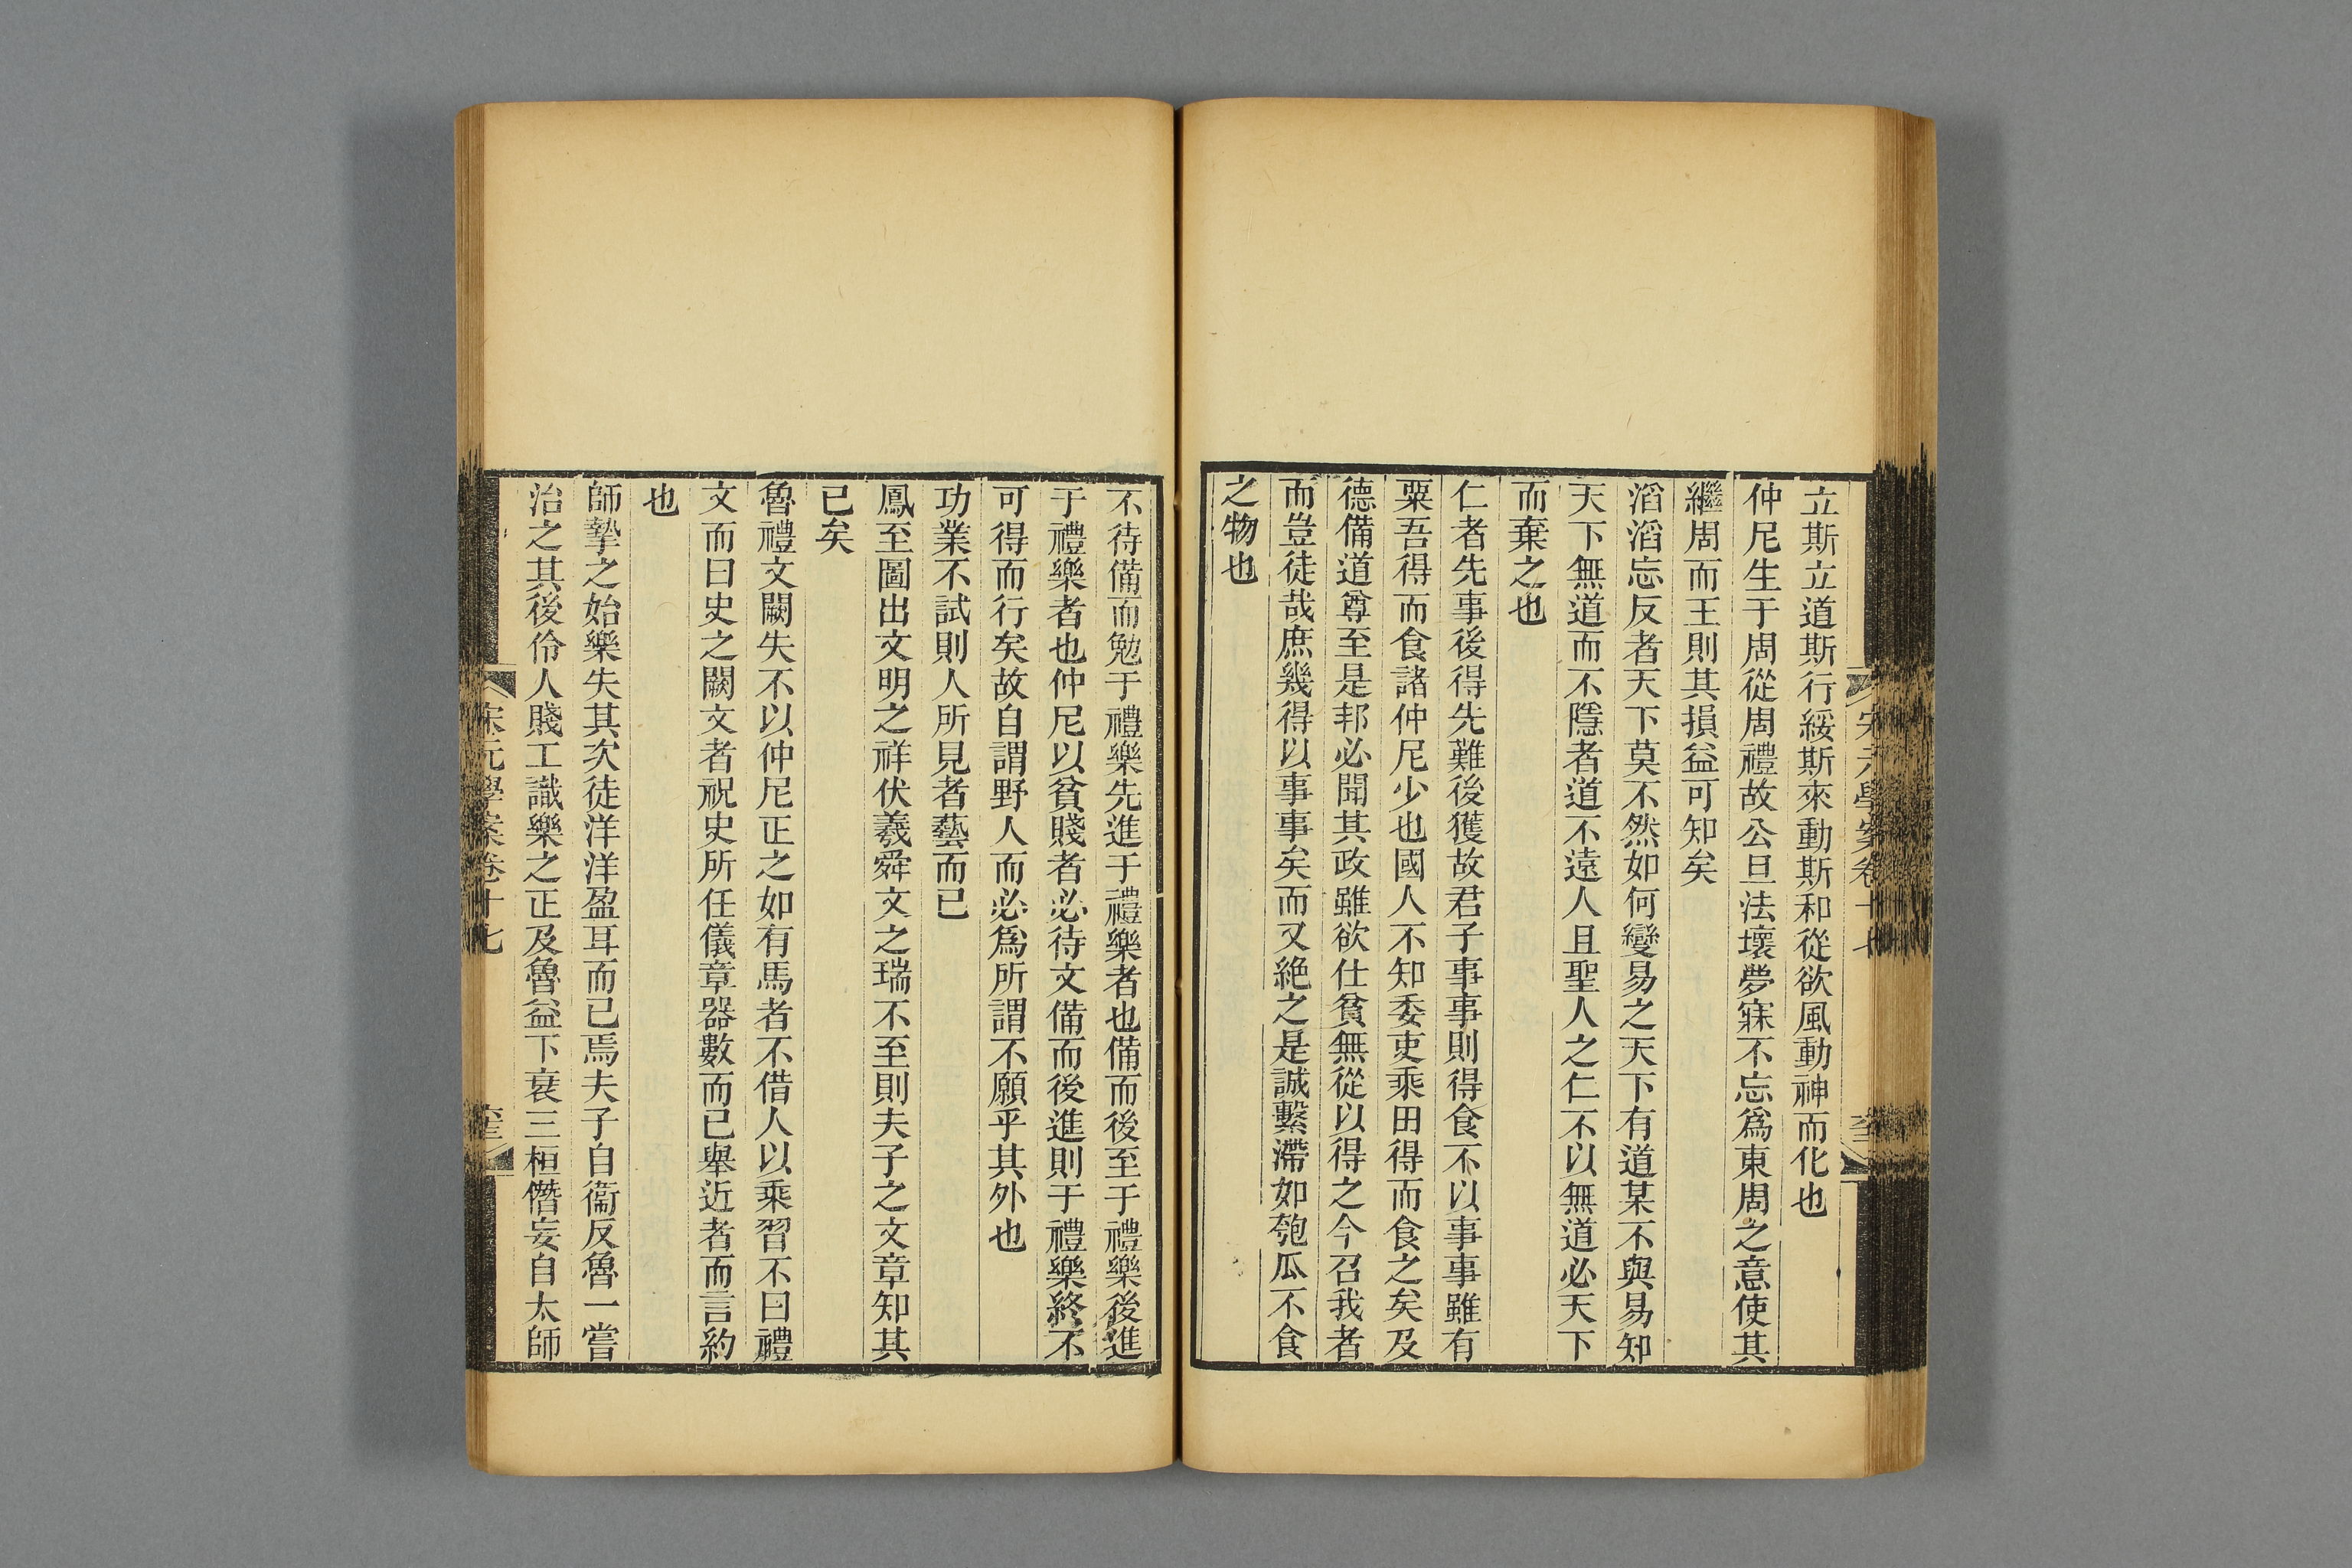 立斯立道斯行綏斯來動斯和從欲風動神而化也
仲尼生于周從周禮故公旦法壞夢寐不忘爲東周之意使其
繼周而王則其損益可知矣
滔滔忘反者天下莫不然如何變易之天下有道某不與易知
天下無道而不隱者道不遠人且聖人之仁不以無道必天下
而棄之也
仁者先事後得先難後獲故君子事事則得食不以事事雖有
粟吾得而食諸仲尼少也國人不知委吏乘田得而食之矣及
德備道尊至是邦必聞其政雖欲仕貧無從以得之今召我者
而豈徒哉庶幾得以事事矣而又絶之是誠繫滯如匏瓜不食
之物也
宋元學案卷十七
不待備而勉于禮樂先進于禮樂者也備而後至于禮樂後進
于禮樂者也仲尼以貧賤者必待文備而後進則于禮樂終不
可得而行矣故自謂野人而必爲所謂不願乎其外也
功業不試則人所見者藝而已
鳳至圖出文明之祥伏羲舜文之瑞不至則夫子之文章知其
已矣
魯禮文闕失不以仲尼正之如有馬者不借人以乘習不曰禮
文而曰史之闕文者祝史所任儀章器數而已舉近者而言約
也
師摯之始樂失其次徒洋洋盈耳而已焉夫子自衞反魯一嘗
治之其後伶人賤工識樂之正及魯益下衰三桓僭妄自太師
宋元學案卷十七